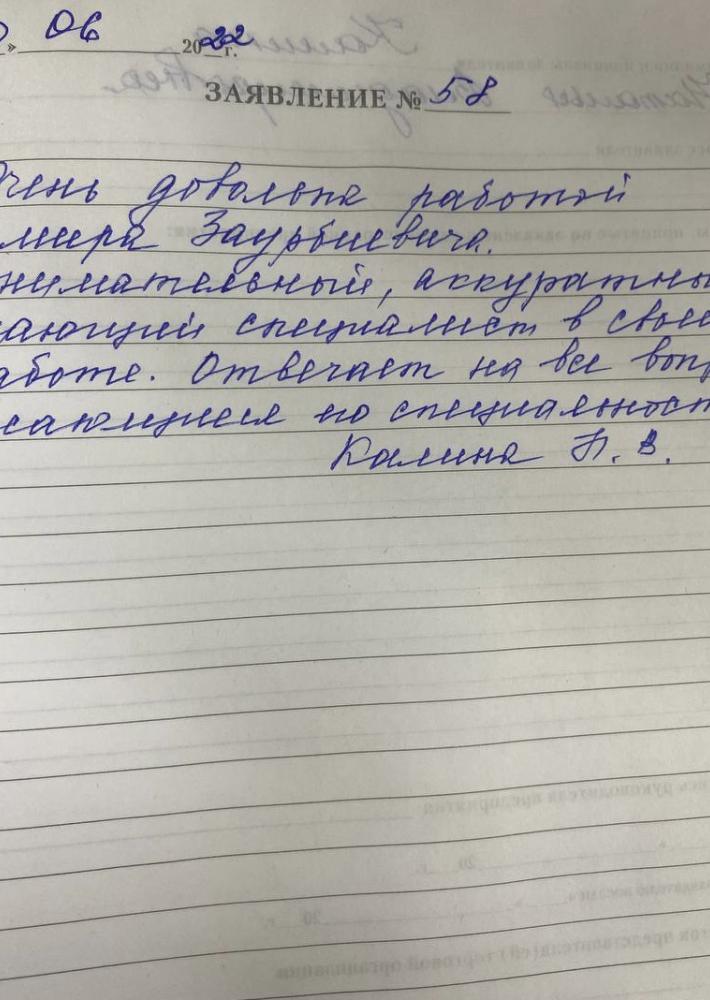 » 06 2022 г.
ЗАЯВЛЕНИЕ № 58
Очень довольна работой
мира Заурбиевича.
нимательный, аккуратны
ающий специалист в свое
аботе. Отвечает на все вопр
сающиеся по специальност
Калина Н. В.